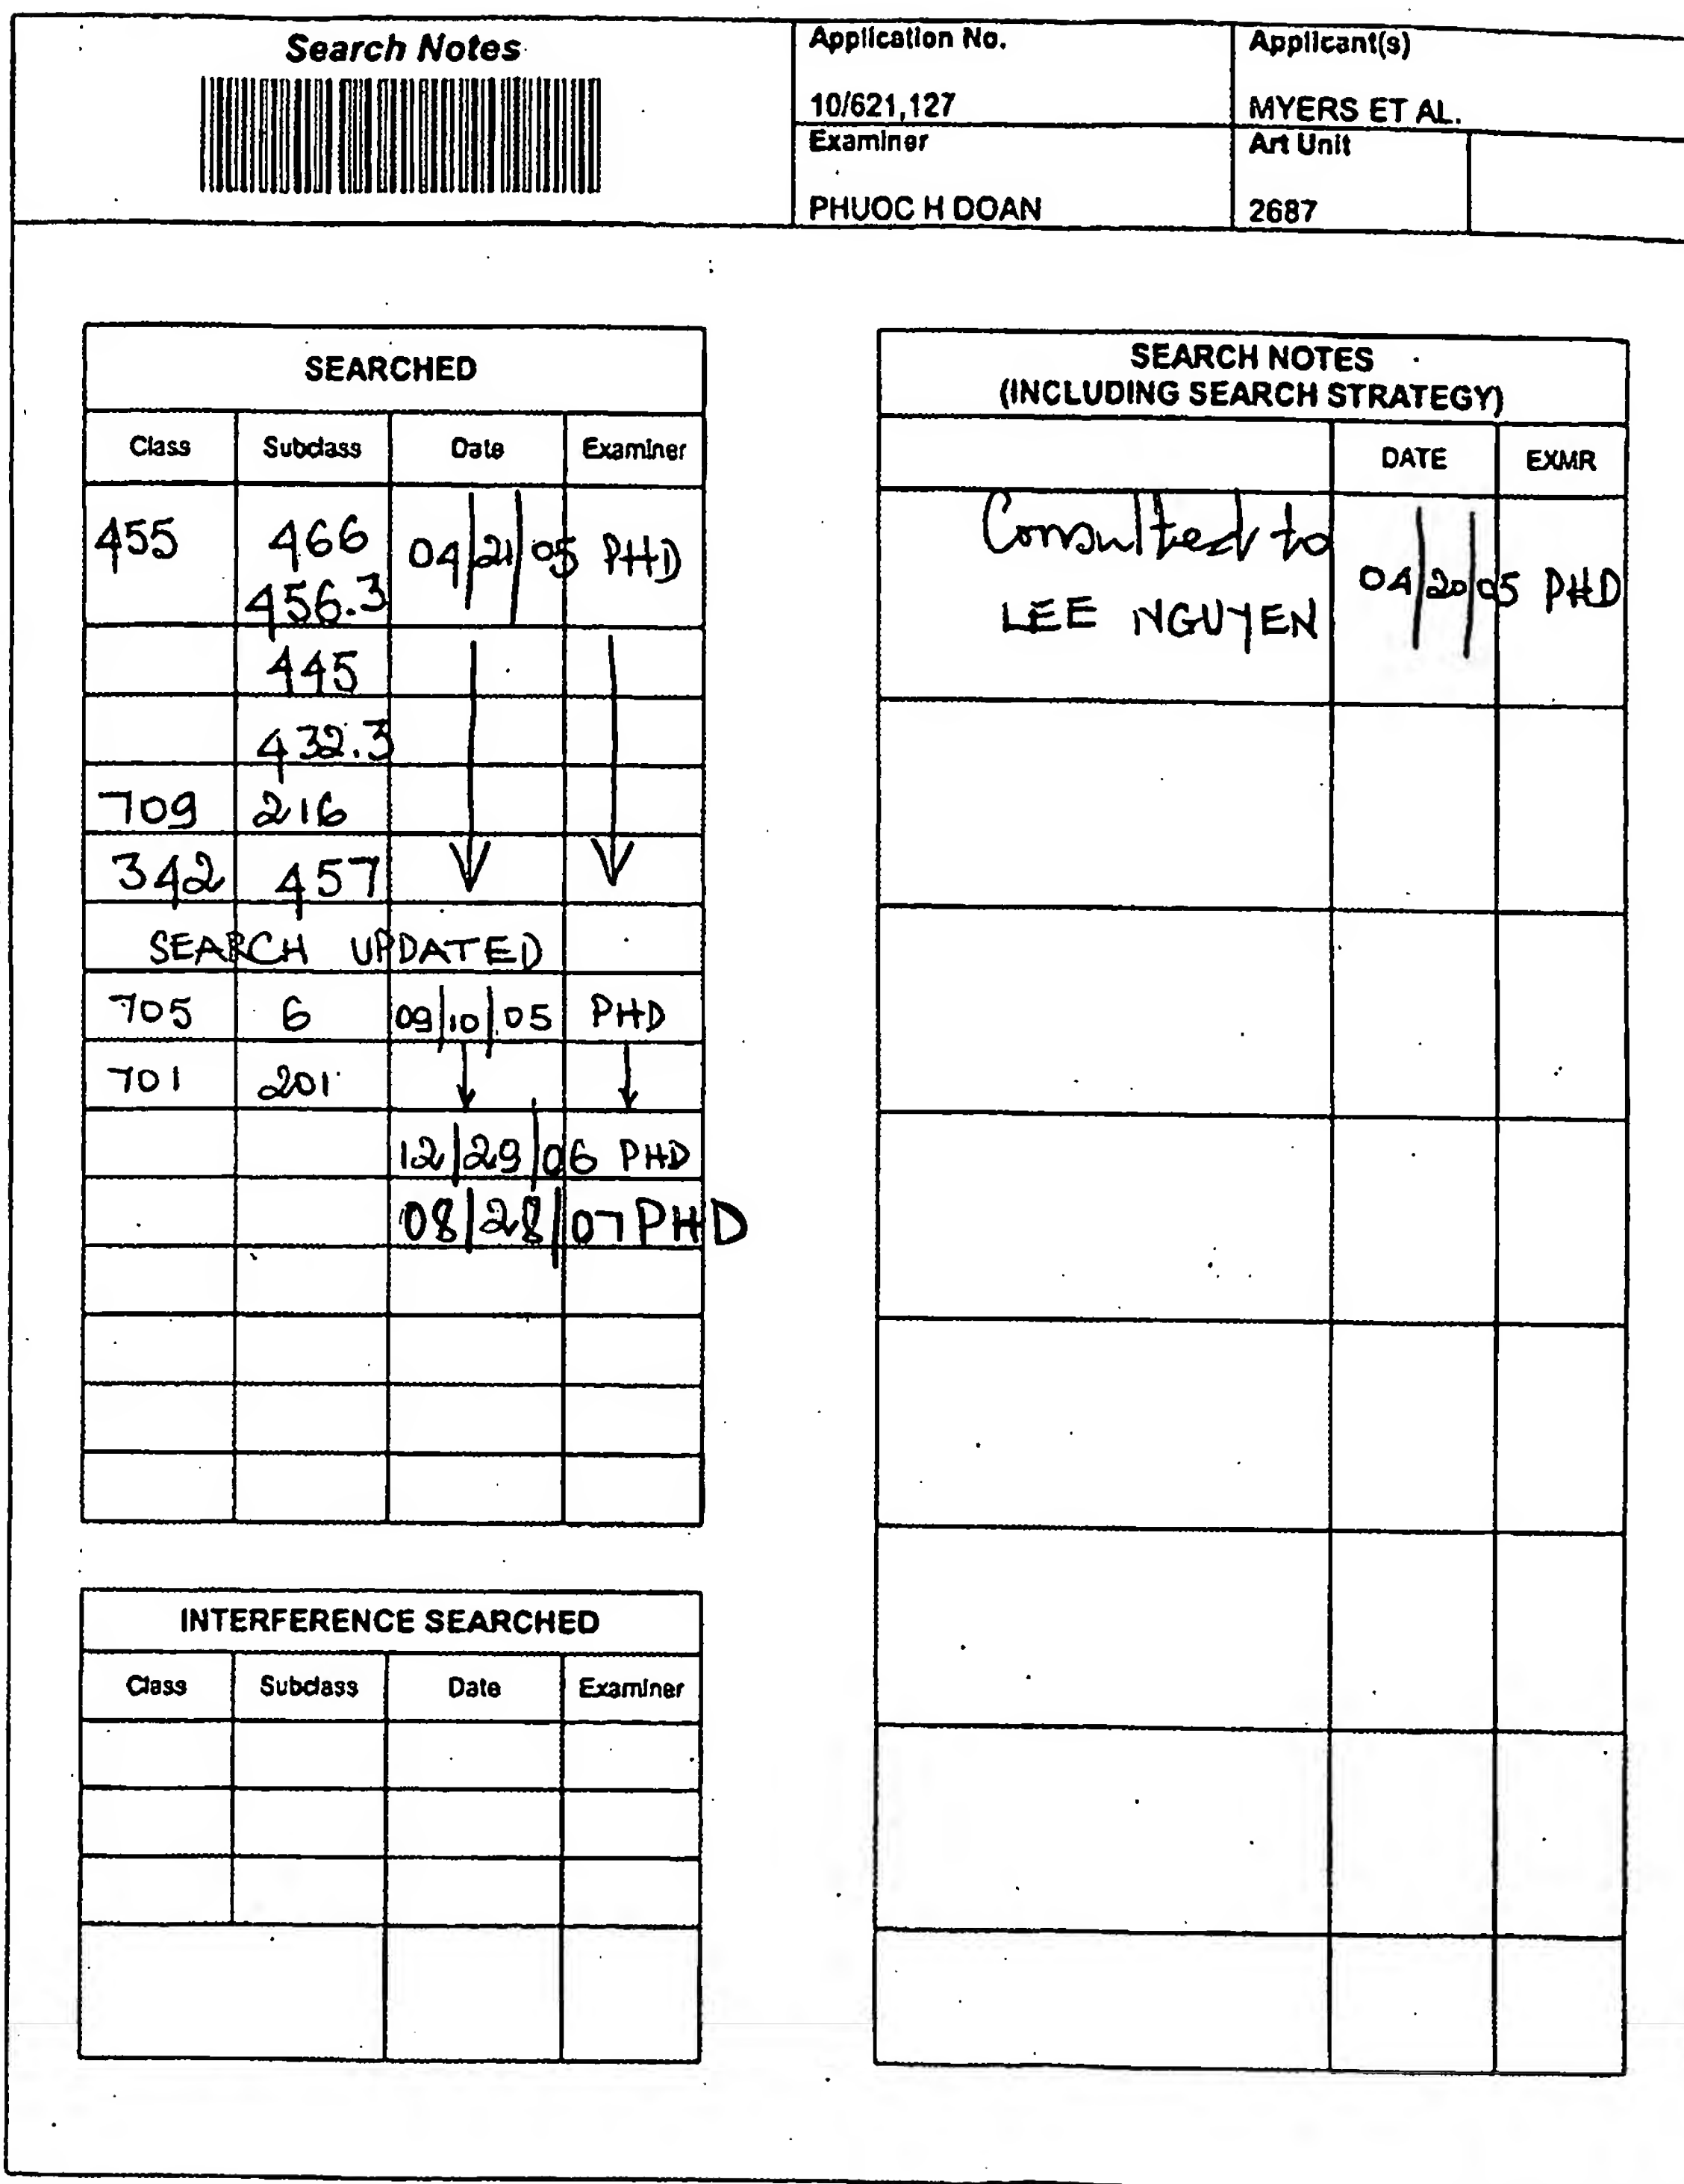 Search Notes
Application No.
Applicant(s)
10/621,127
MYERS ET AL.
Examiner
Art Unit
PHUOC H DOAN
2687
SEARCHED
Class Subclass Date Examiner
455 466 04/21/05 PHD
456.3
445
432.3
709 216
342 457
SEARCH UPDATED
705 6 09/10/05 PHD
701 201
12/29/06 PHD
08/28/07 PHD
INTERFERENCE SEARCHED
Class Subclass Date Examiner
SEARCH NOTES
(INCLUDING SEARCH STRATEGY)
DATE EXMR
Consulted to
LEE NGUYEN 04/20/05 PHD